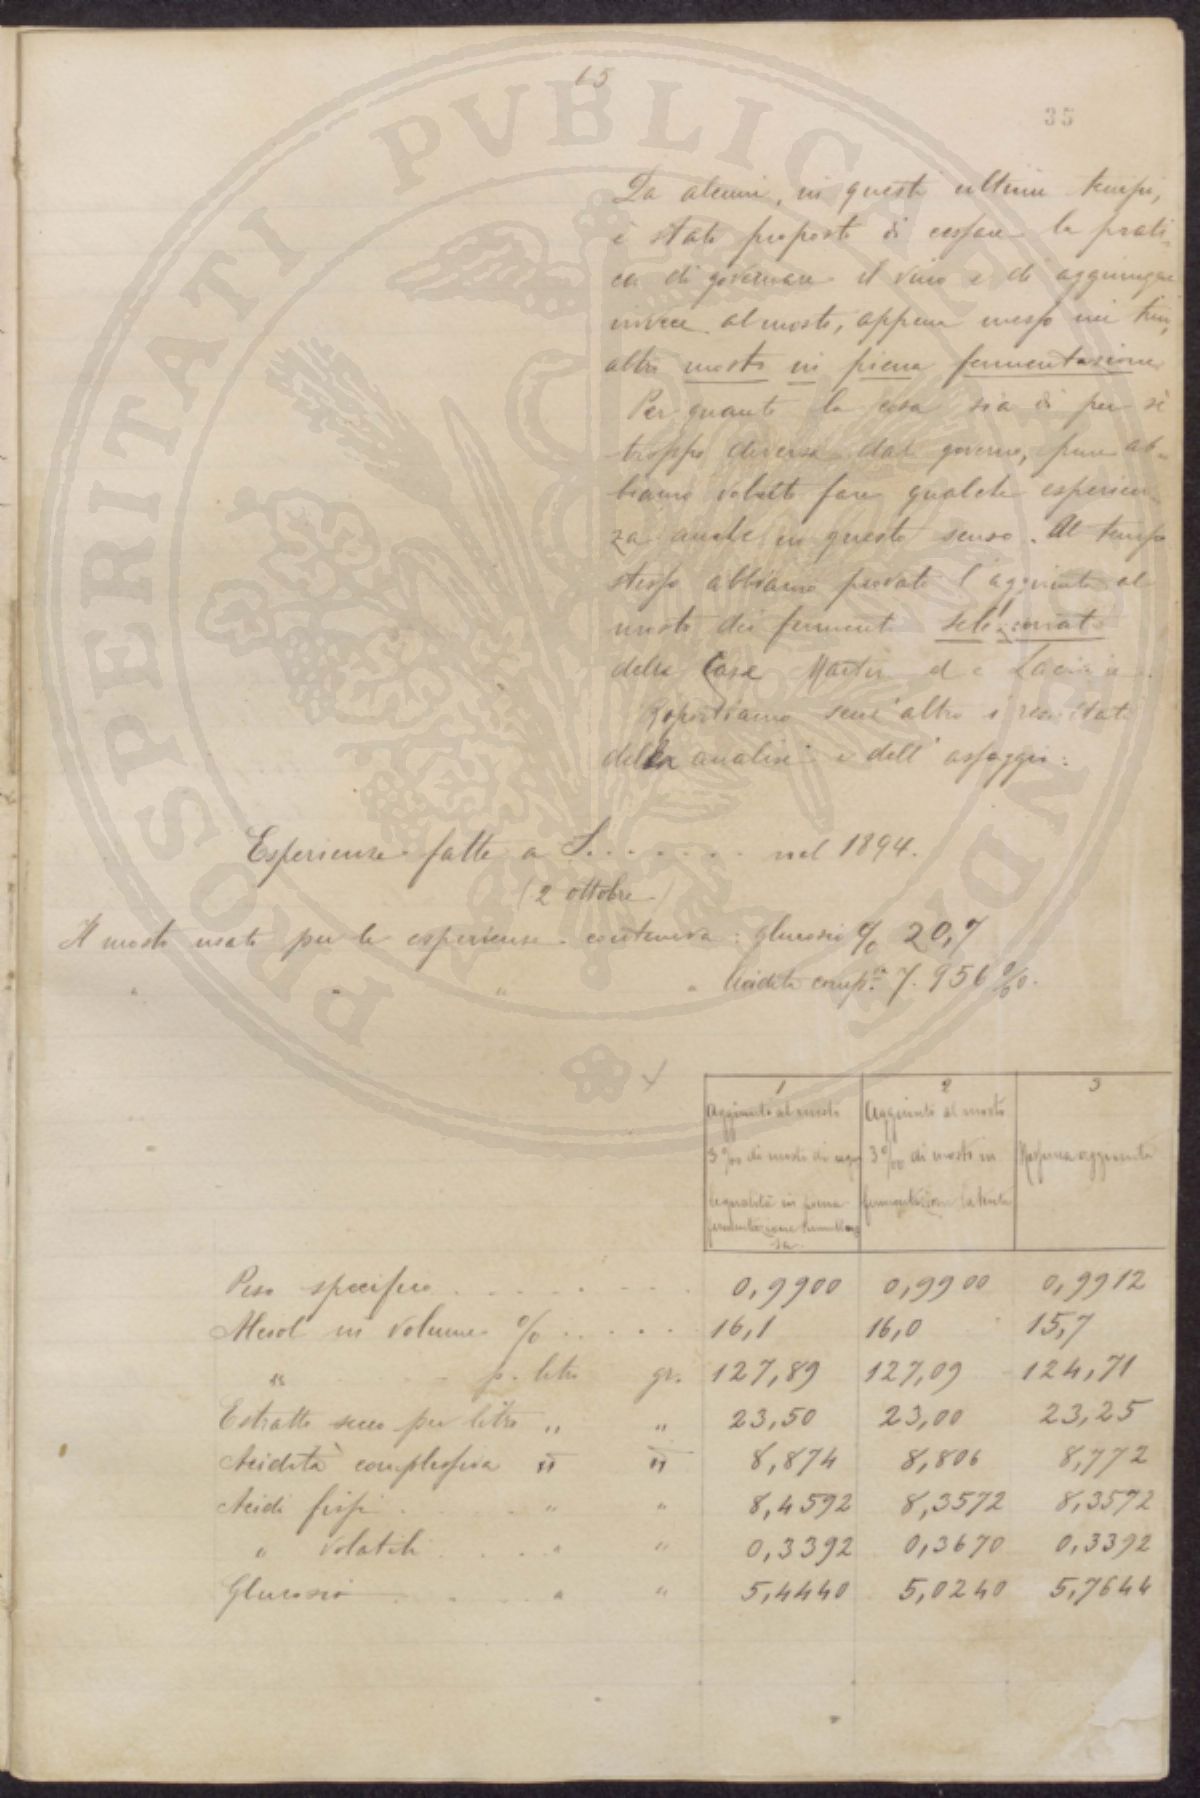 15
35
PROSPERITATI PVBLICAE AVGENDAE
Da alcuni, in questi ultimi tempi,
è stato proposto di cessare la prati-
ca di governare il vino e di aggiungere
invece al mosto, appena messo nei tini,
altro mosto in piena fermentazione.
Per quanto la cosa sia di per sè
troppo diversa dal governo, pure ab-
biamo voluto fare qualche esperien-
za anche in questo senso. Al tempo
stesso abbiamo provato l'aggiunta al
mosto dei fermenti selezionati
della Casa
Riportiamo senz'altro i resultati
della analisi e dell'assaggio:
Esperienze fatte a S....... nel 1894.
(2 ottobre)
Il mosto usato per le esperienze conteneva: glucosio % 20,7
" " " " Acidità comp.ª 7.956 ‰.
1 2 3
Aggiunto al mosto
3 ‰ di mosto di egua
le qualità in piena
fermentazione tumultuo
sa.
Aggiunto al mosto
3 ‰ di mosto in
fermentazione lenta
Nessuna aggiunta
Peso specifico . . . . . . 0,9900 0,9900 0,9912
Alcool in volume % . . . . . 16,1 16,0 15,7
" p. litro gr. 127,89 127,09 124,71
Estratto secco per litro " " 23,50 23,00 23,25
Acidità complessiva " " 8,874 8,806 8,772
Acidi fissi . . . " " 8,4592 8,3572 8,3572
" volatili . . . . " " 0,3392 0,3670 0,3392
Glucosio . . . . " " 5,4440 5,0240 5,7644